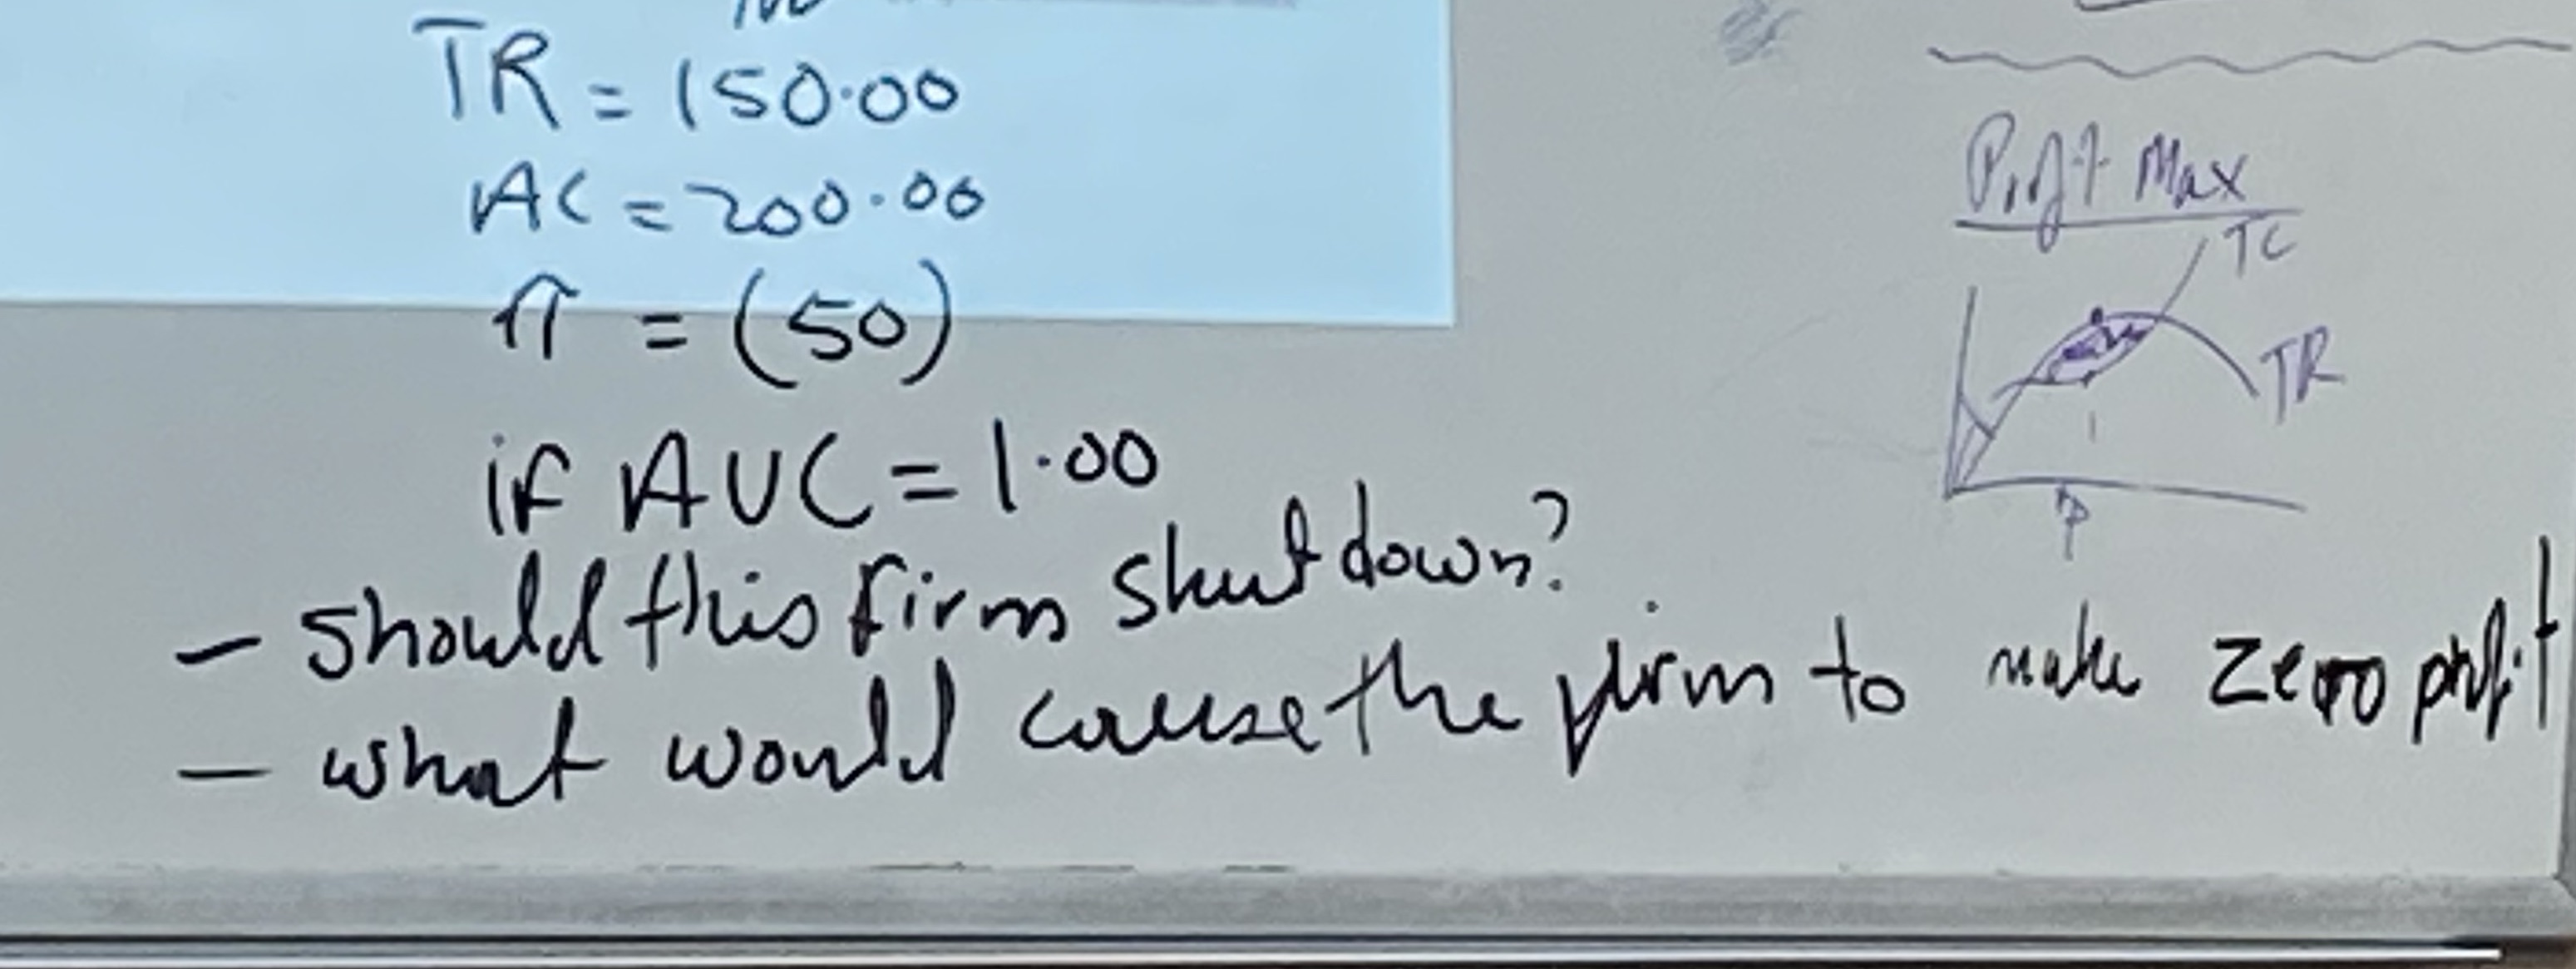 TR = 150.00
AC = 200.00
π = (50)
if AVC = 1.00
- should this firm shut down?
- what would cause the firm to make zero profit
Profit Max
TC
TR